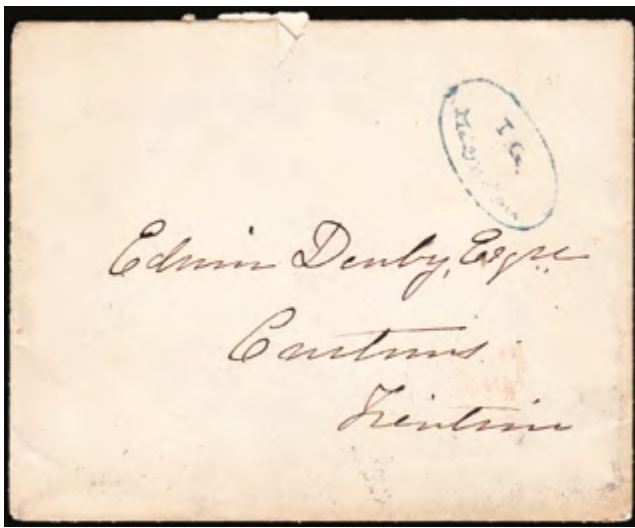 I. G.
Edwin Denby, Esqre
Customs
Tientsin